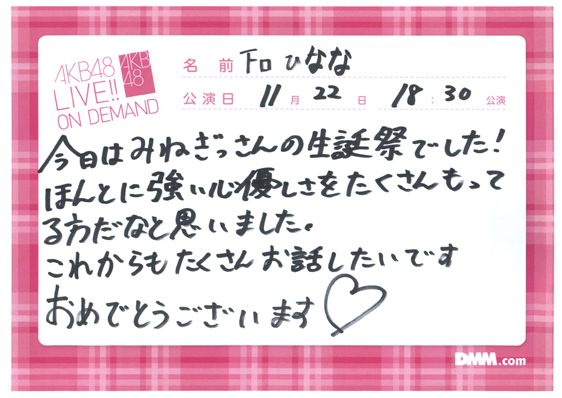 AKB48
LIVE!!
ON DEMAND
AKB
48
名 前 下口ひなな
公演日 11 月 22 日 18 : 30 公演
今日はみねぎっさんの生誕祭でした!
ほんとに強い心優しさをたくさんもって
る方だなと思いました。
これからもたくさんお話したいです
おめでとうございます♡
DMM.com